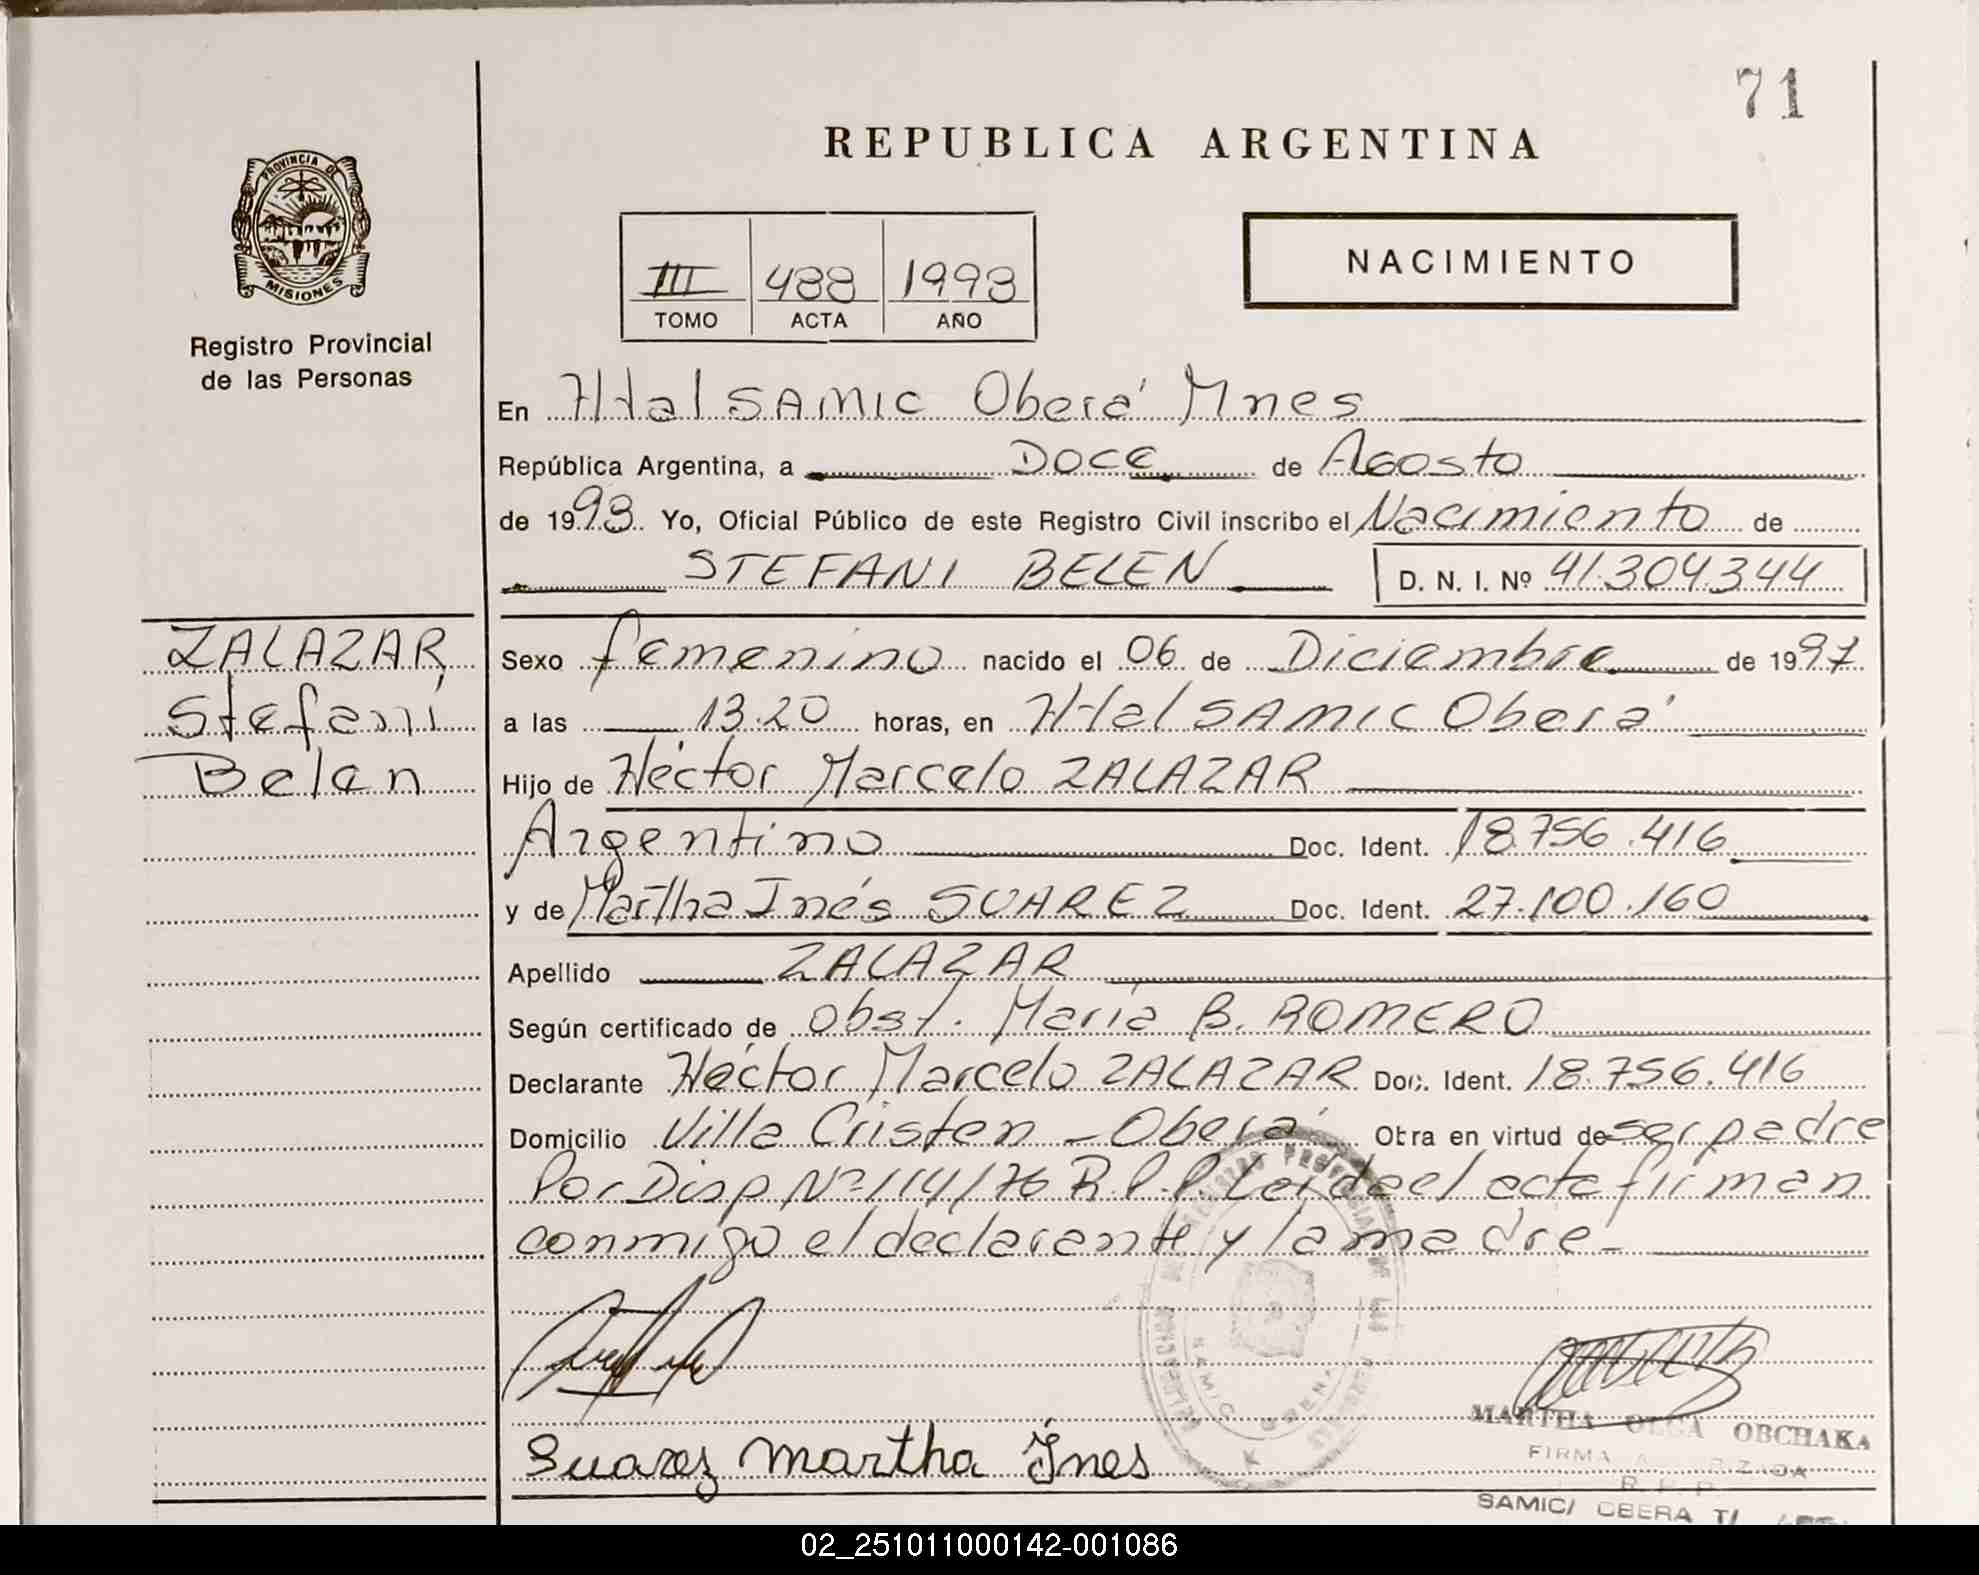 71
REPUBLICA ARGENTINA
PROVINCIA DE
MISIONES
Registro Provincial
de las Personas
III 488 1998
TOMO ACTA AÑO
NACIMIENTO
En Htal SAMIC Oberá Mnes
República Argentina, a DOCE de Agosto
de 1998 Yo, Oficial Público de este Registro Civil inscribo el Nacimiento de
STEFANI BELEN D. N. I. Nº 41.304.344
ZALAZAR
Stefani
Belen
Sexo femenino nacido el 06 de Diciembre de 1997
a las 13.20 horas, en Htal SAMIC Oberá
Hijo de Héctor Marcelo ZALAZAR
Argentino Doc. Ident. 18.756.416
y de Martha Inés SUAREZ Doc. Ident. 27.100.160
Apellido ZALAZAR
Según certificado de obst. María B. ROMERO
Declarante Héctor Marcelo ZALAZAR Doc. Ident. 18.756.416
Domicilio Villa Cristen - Oberá Obra en virtud de ser padre
Por Disp Nº 114/76 R.P.P. Leída el acta firman
conmigo el declarante y la madre-
Suarez Martha Ines
MARTHA OLGA OBCHAKA
FIRMA
R. P. P.
SAMIC/ OBERA
02_251011000142-001086